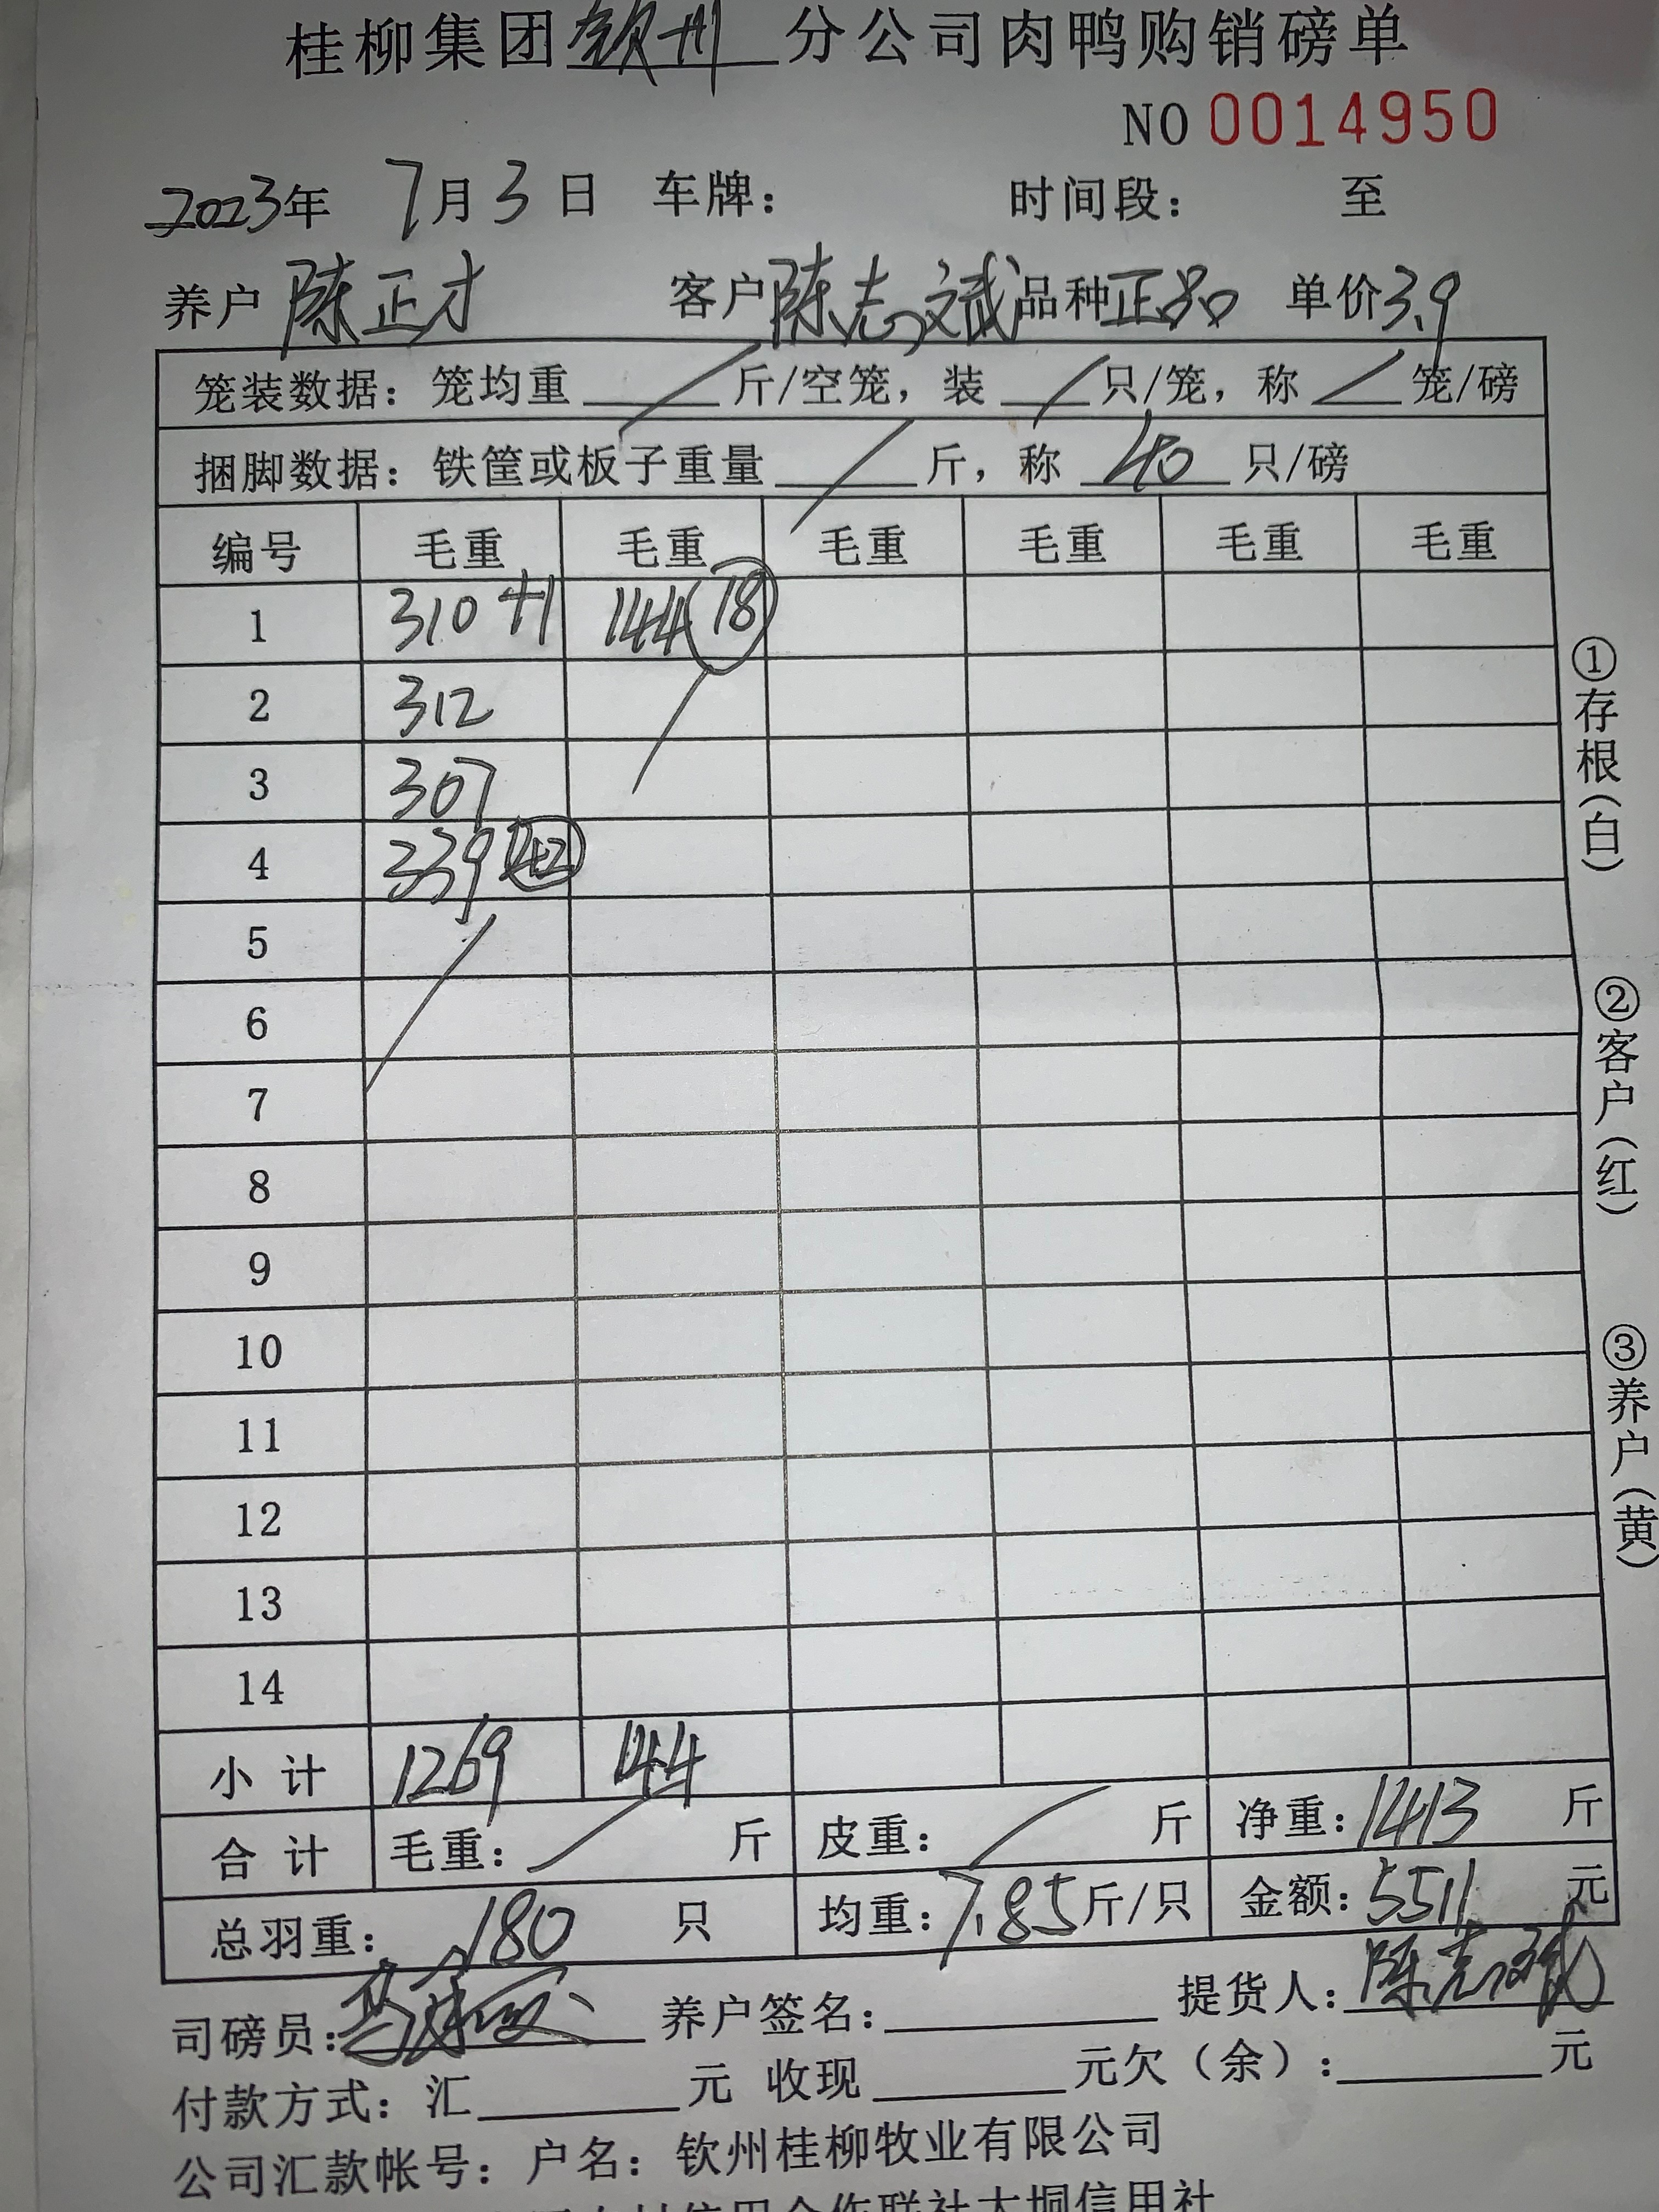 桂柳集团钦州分公司肉鸭购销磅单
NO 0014950
2023年 7月3日 车牌： 时间段： 至
养户 陈正才 客户 陈志斌 品种 正品 单价 3.9
笼装数据：笼均重 斤/空笼，装 只/笼，称 笼/磅
捆脚数据：铁筐或板子重量 斤，称 40 只/磅
编号 毛重 毛重 毛重 毛重 毛重 毛重
1 310 +1 144 18
2 312
3 307
4 339 42
5
6
7
8
9
10
11
12
13
14
小计 1269 144
合计 毛重： 斤 皮重： 斤 净重：1413 斤
总羽重：180 只 均重：7.85 斤/只 金额：5511 元
司磅员： 养户签名： 提货人：陈志斌
付款方式：汇 元 收现 元欠（余）： 元
公司汇款帐号：户名：钦州桂柳牧业有限公司
信用合作联社大垌信用社
①存根（白）
②客户（红）
③养户（黄）